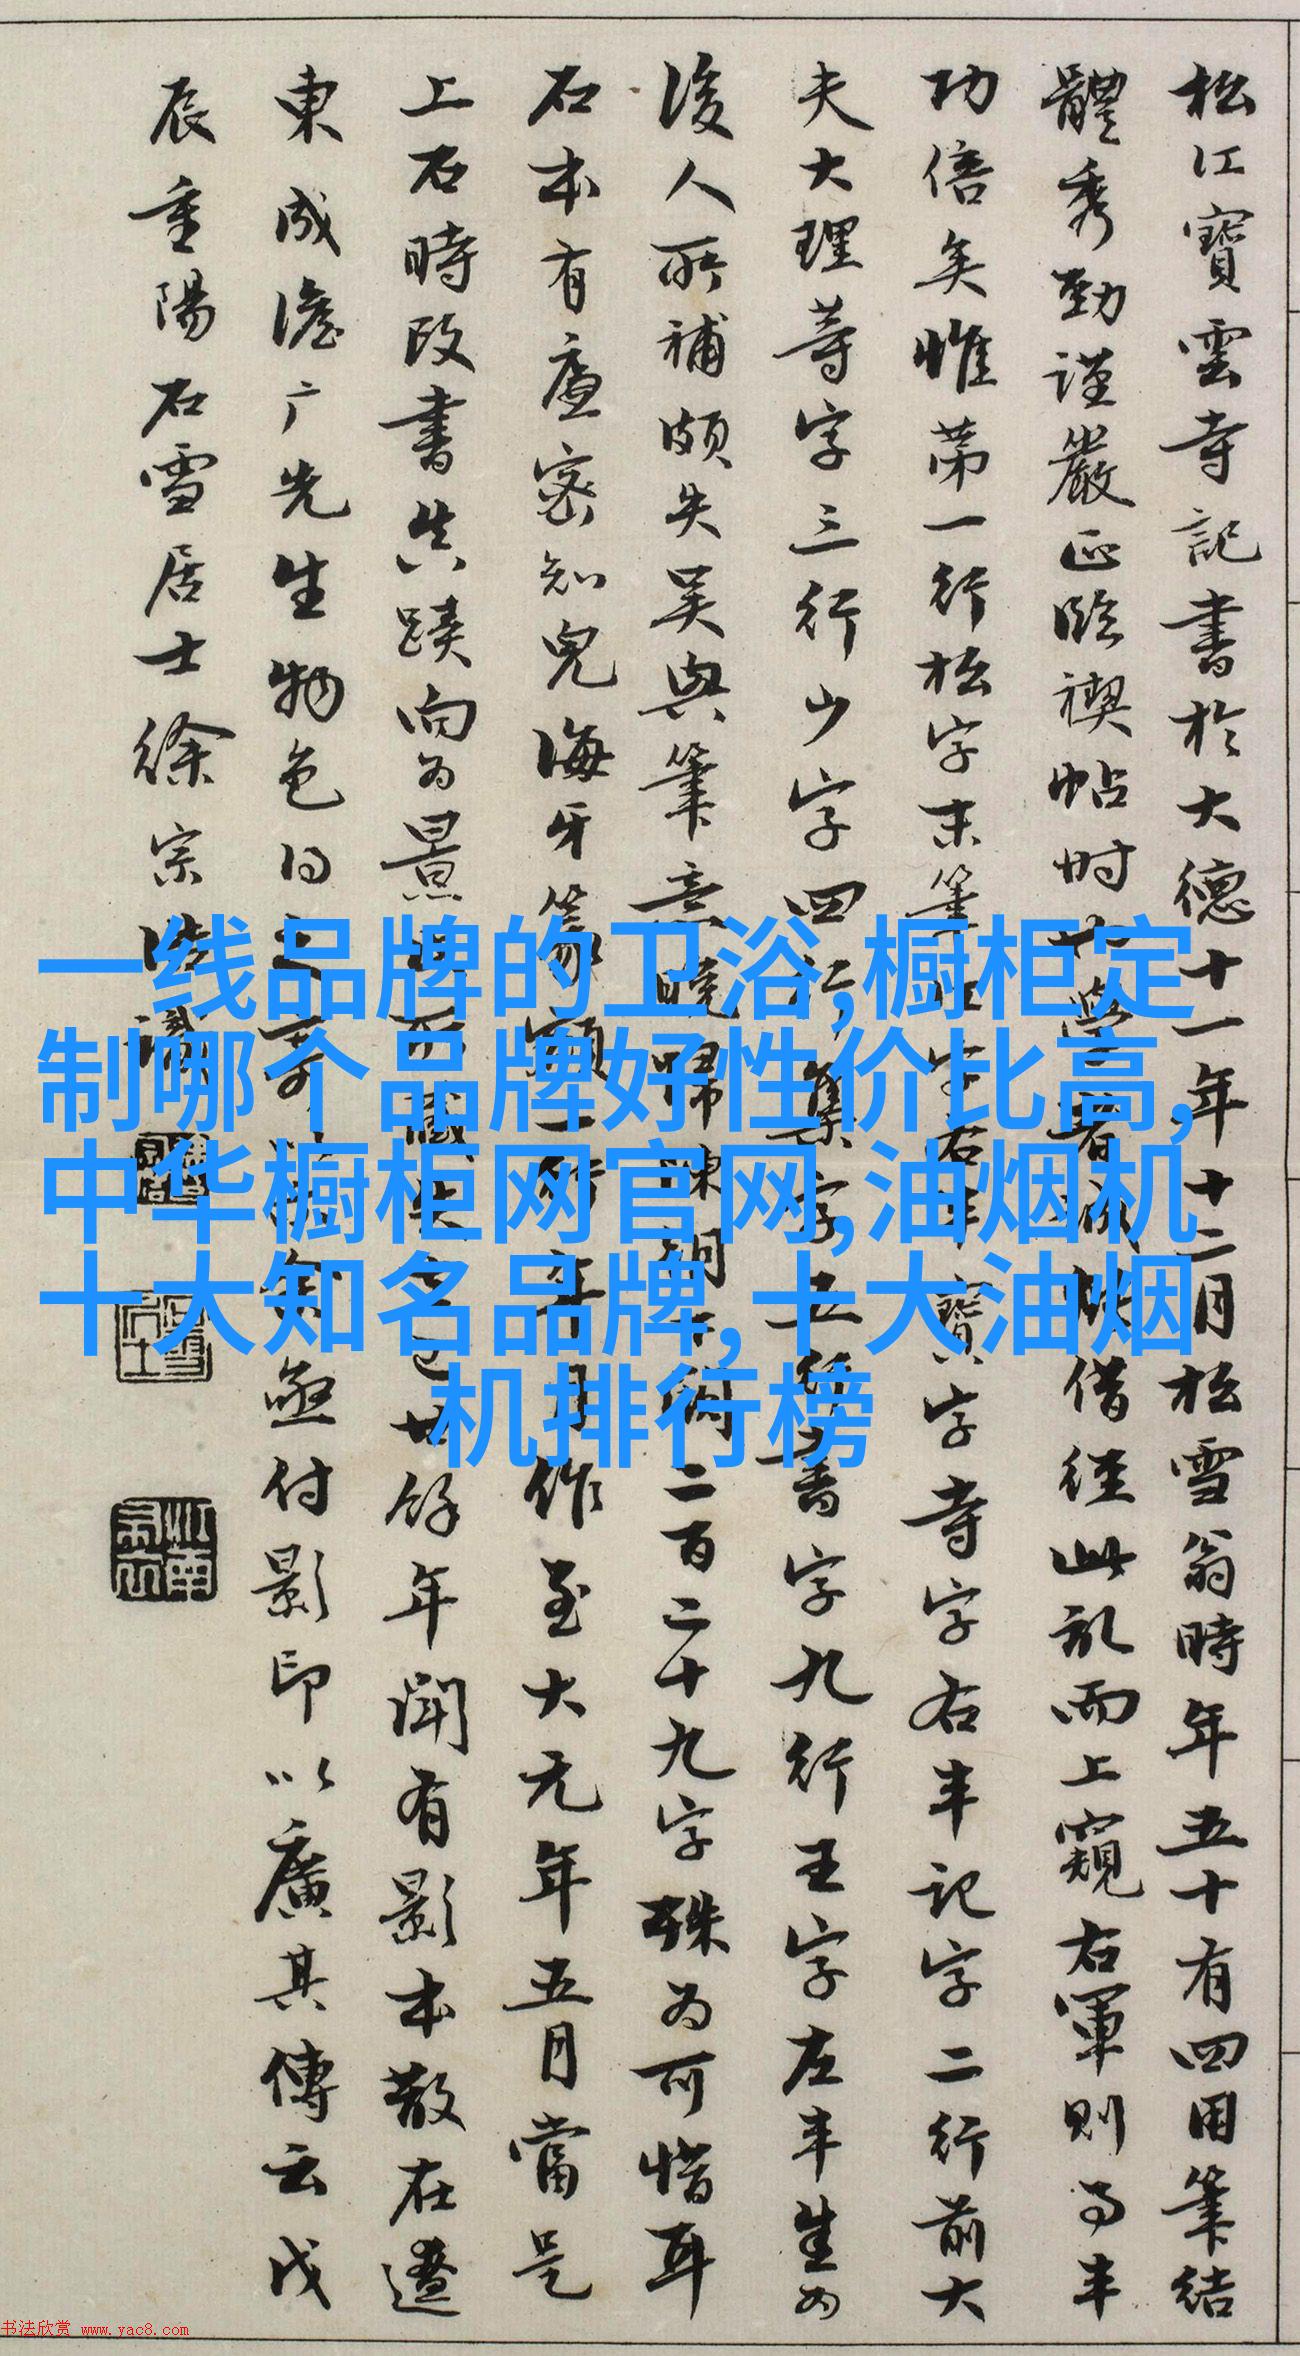 松江寶雲寺記書於大德十一年十二月松雪翁時年五十有四用筆結
體秀勁謹嚴正臨禊帖時
借徑此刻而上窺右軍則事半
功倍矣惟第一行松字末筆
寶字寺字右半記字二行前大
夫大理等字三行少字四行
集字五行書字九行王字左半生為
後人所補頗失吳興筆意
二百二十九字殊為可惜耳
石本有廬密知兒海牙篆額
年月作至大元年五月當是
上石時改書真蹟向為景
廿餘年聞有影本散在遼
東成澹广先生物色得
亟付影印以廣其傳云戊
辰重陽石雪居士徐宗浩識
一线品牌的卫浴,橱柜定
制哪个品牌好性价比高,
中华橱柜网官网,油烟机
十大知名品牌,十大油烟
机排行榜
书法欣赏 www.yac8.com